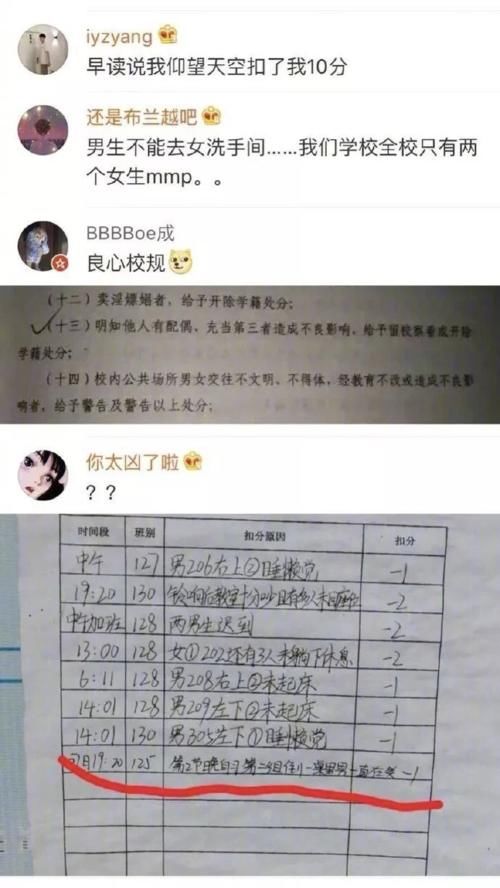 iyzyang
早读说我仰望天空扣了我10分
还是布兰越吧
男生不能去女洗手间……我们学校全校只有两
个女生mmp。。
BBBBoe成
良心校规
（十二）卖淫嫖娼者，给予开除学籍处分；
（十三）明知他人有配偶、充当第三者造成不良影响，给予留校察看或开除
学籍处分；
（十四）校内公共场所男女交往不文明、不得体，经教育不改或造成不良影
响者，给予警告及警告以上处分；
你太凶了啦
？？
时间段 班别 扣分原因 扣分
中午 127 男206右上②睡懒觉 -1
19:20 130 铃响后教室十分吵且有多人未回座位 -2
中午加班 128 两男生迟到 -2
13:00 128 女① 202还有3人未躺下休息 -2
6:11 128 男208右上②未起床 -1
14:01 128 男209左下②未起床 -1
14:01 130 男305左下①睡懒觉 -1
19:20 125 第2节晚自习第二组 一直在笑 -1